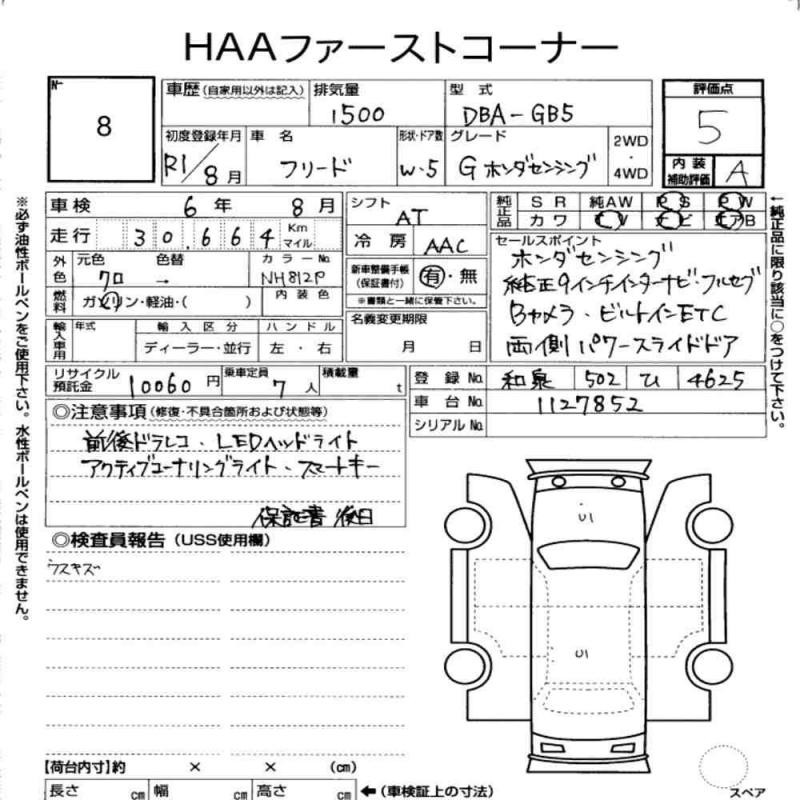 HAAファーストコーナー
№ 8
車歴 (自家用以外は記入) 排気量 1500 型式 DBA-GB5 評価点 5
初度登録年月 R1/8月 車名 フリード 形状・ドア数 W・5 グレード G ホンダセンシング 2WD・4WD 内装補助評価 A
車検 6年 8月 シフト AT 純正品 SR 純AW PS PW
走行 30,664 Km マイル 冷房 AAC カワ TV ナビ エアB
外色 元色 クロ 色替 → カラーNo. NH812P 新車整備手帳(保証書付) 有・無 セールスポイント
ホンダセンシング
燃料 ガソリン・軽油・( ) 内装色 ※書類と一緒に保管下さい。 純正9インチインターナビ・フルセグ
輸入車用 年式 輸入区分 ハンドル 名義変更期限 Bカメラ・ビルトインETC
ディーラー・並行 左・右 月 日 両側パワースライドドア
リサイクル預託金 10060円 乗車定員 7人 積載量 t 登録No. 和泉 502 ひ 4625
車台No. 1127852
シリアルNo.
◎注意事項 (修復・不具合箇所および状態等)
前後ドラレコ、LEDヘッドライト
アクティブコーナリングライト、スマートキー
保証書 後日
◎検査員報告 (USS使用欄)
ウスキズ
【荷台内寸】約 × × (cm)
長さ cm 幅 cm 高さ cm ←(車検証上の寸法)
スペア
※必ず油性ボールペンをご使用下さい。水性ボールペンは使用できません。
←純正品に限り該当に○をつけて下さい。